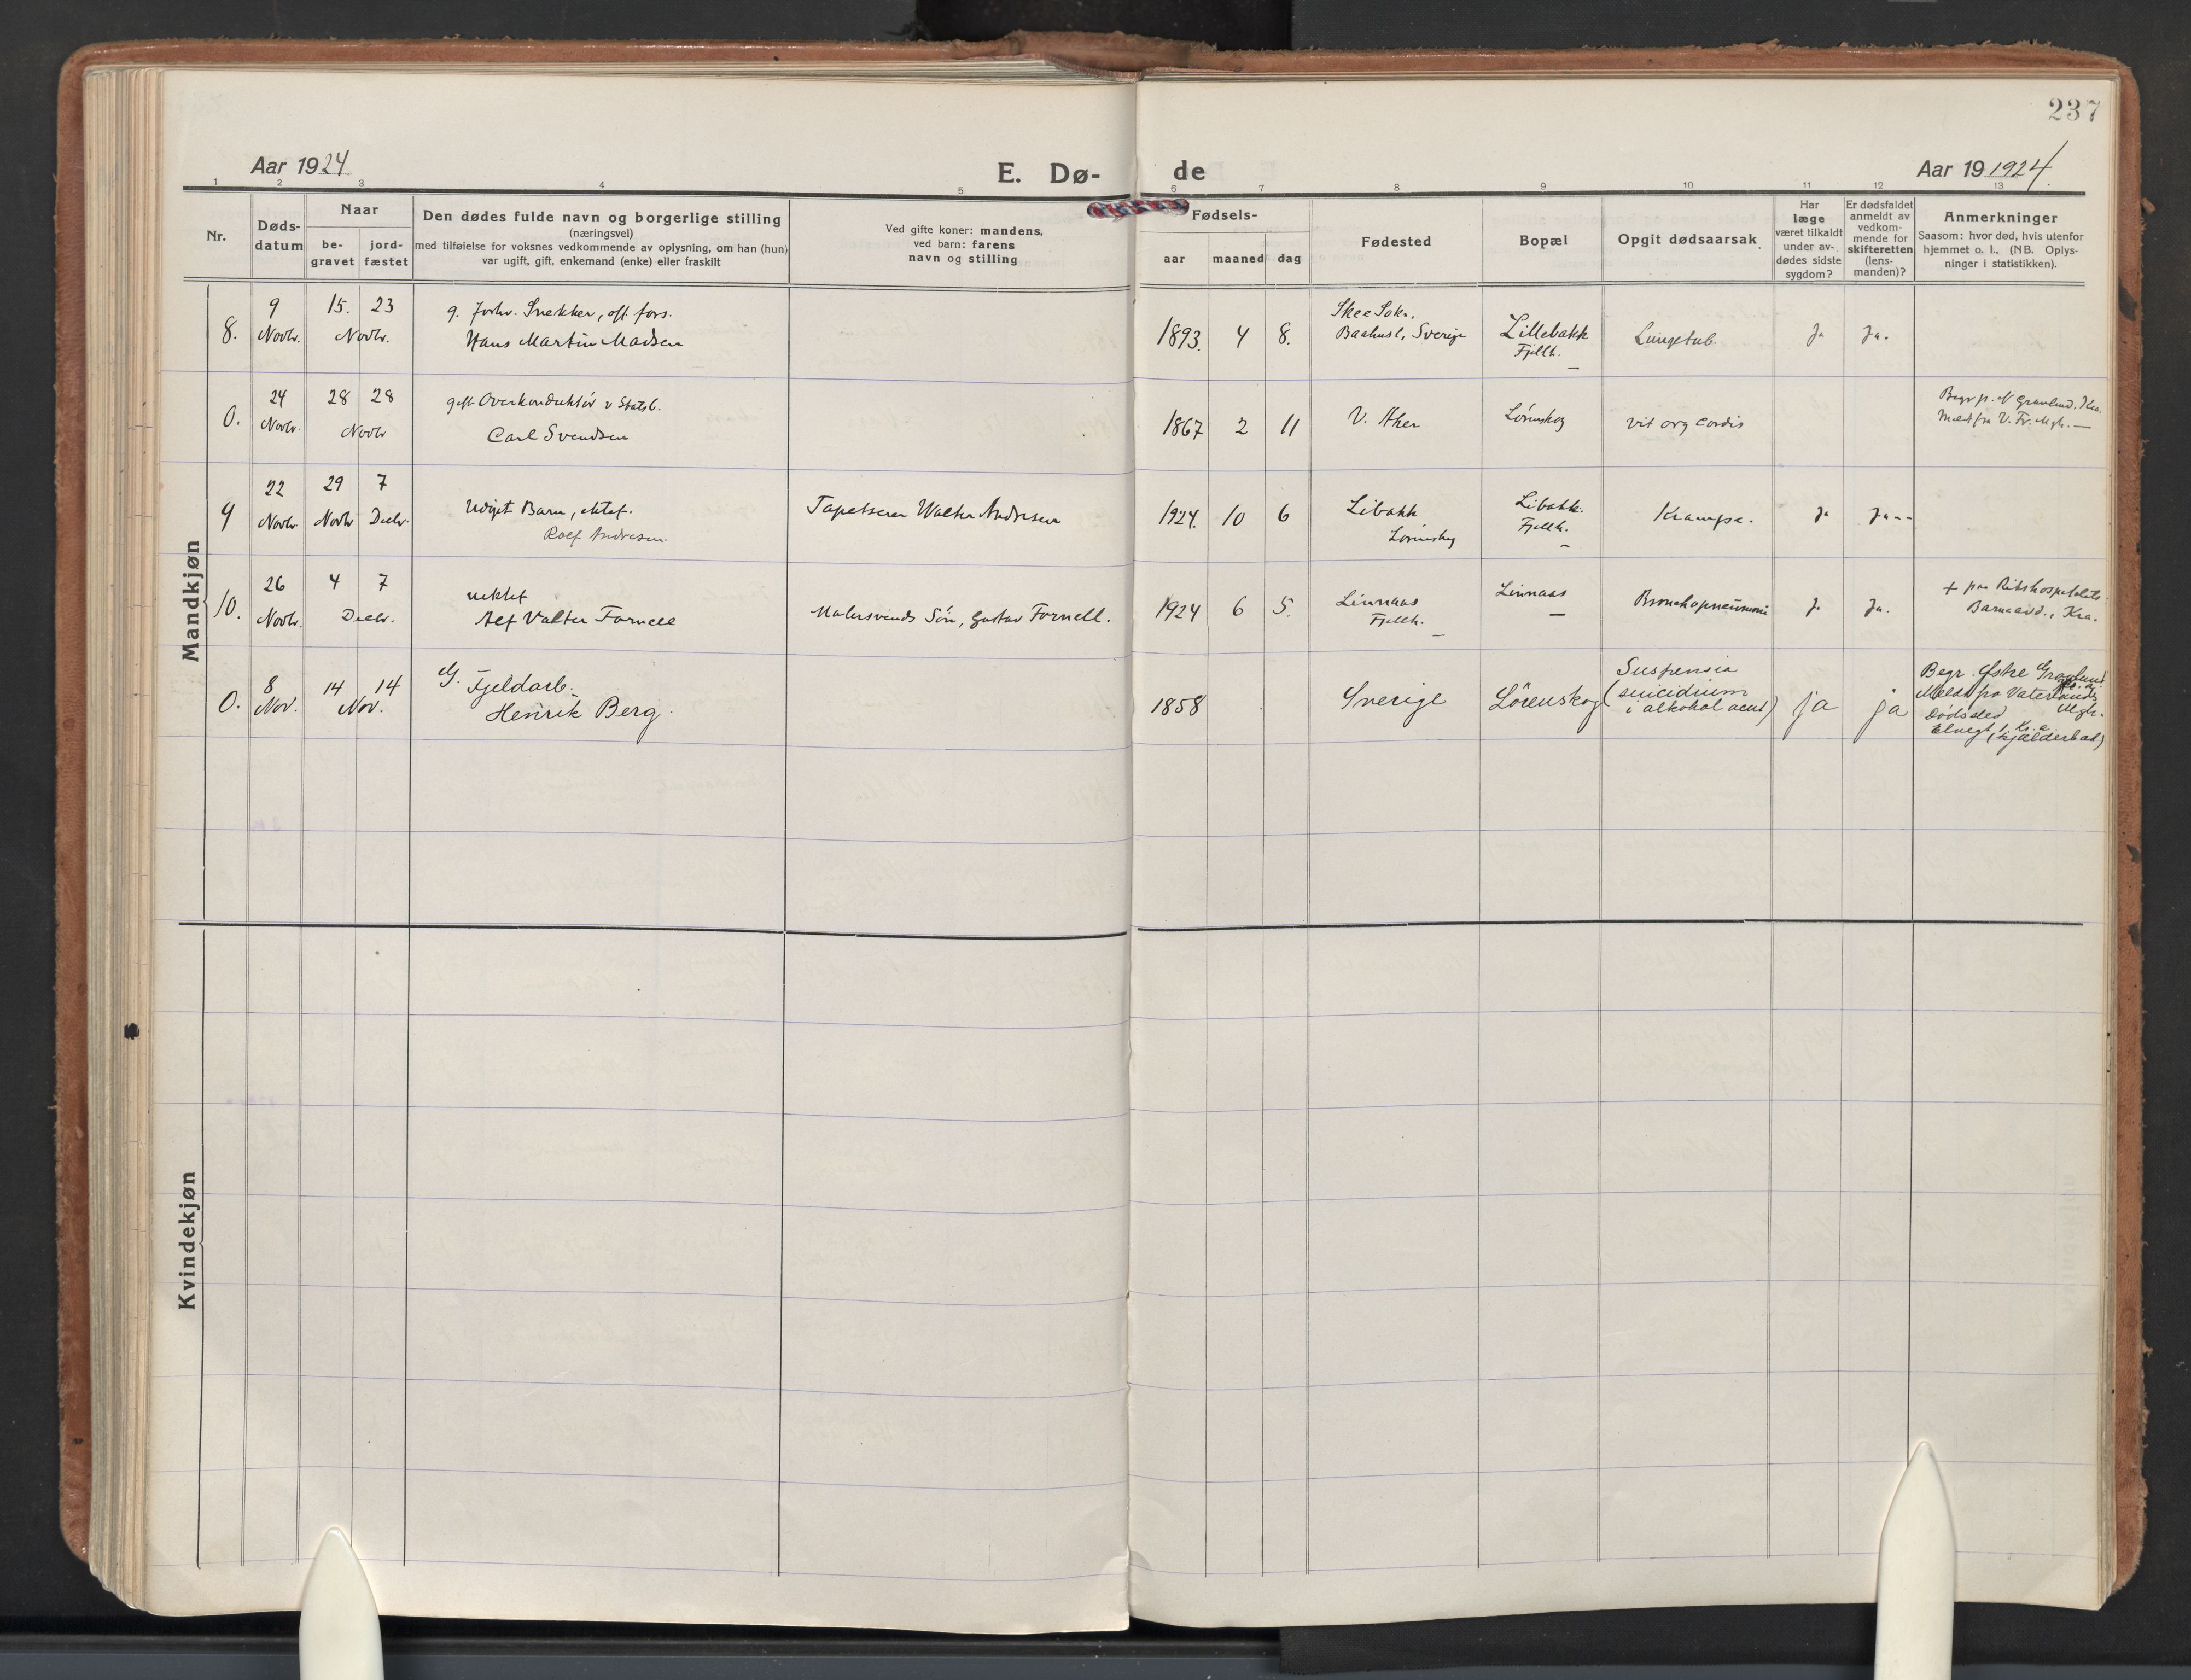 237
Aar 1924
E. Dø-
de
Aar 19 1924.
1 2 3 4 5 6 7 8 9 10 11 12 13
Nr.
Døds-
datum
Naar
be-
gravet
jord-
fæstet
Den dødes fulde navn og borgerlige stilling
(næringsvei)
med tilføielse for voksnes vedkommende av oplysning, om han (hun)
var ugift, gift, enkemand (enke) eller fraskilt
Ved gifte koner: mandens,
ved barn: farens
navn og stilling
Fødsels-
aar maaned dag
Fødested
Bopæl
Opgit dødsaarsak
Har
læge
været tilkaldt
under av-
dødes sidste
sygdom?
Er dødsfaldet
anmeldt av
vedkom-
mende for
skifteretten
(lens-
manden)?
Anmerkninger
Saasom: hvor død, hvis utenfor
hjemmet o. l., (NB. Oplys-
ninger i statistikken).
Mandkjøn
8.
9
Novbr.
15. 23
Novbr.
g. forhv. Snekker, oft. fors.
Hans Martin Madsen
1893. 4 8.
Skee Sokn,
Baahusl, Sverige
Lillebakk
Fjellh.
Lungetub.
Ja
Ja.
0.
24
Novbr.
28 28
Novbr
gift Overkonduktör v Statsb.
Carl Svendsen
1867 2 11
V. Aker
Lörenskog
vit org cordis
Begr p. V Gravlund, Kra.
Meldt fra V. Fr. Mgh.
9
22
Novbr.
29 7
Novbr Decbr.
Udöpt Barn, ektef.
Rolf Andresen.
Tapetserer Walter Andresen
1924. 10 6
Libakk
Lörenskog
Libakk.
Fjellh.
Krampe.
Ja
Ja
10.
26
Novbr.
4 7
Decbr.
uektef
Alf Valter Fornell
Malersvends Sön, Gustav Fornell.
1924 6 5.
Linnaas
Fjellh.
Linnaas
Bronchopneumoni
Ja
Ja.
+ paa Rikshospitalets
Barneavd., Kra.
0.
8
Nov.
14 14
Nov.
G. Fjeldarb.
Henrik Berg.
1858
Sverige
Lörenskog
Suspensio
(suicidium
i alkohol acut)
ja
ja
Begr. Østre Gravlund
Meldt fra Vaterlands
Mgh.
Dödssted
Elvegt 1, Kr.a.
(kjælderbod)
Kvindekjøn